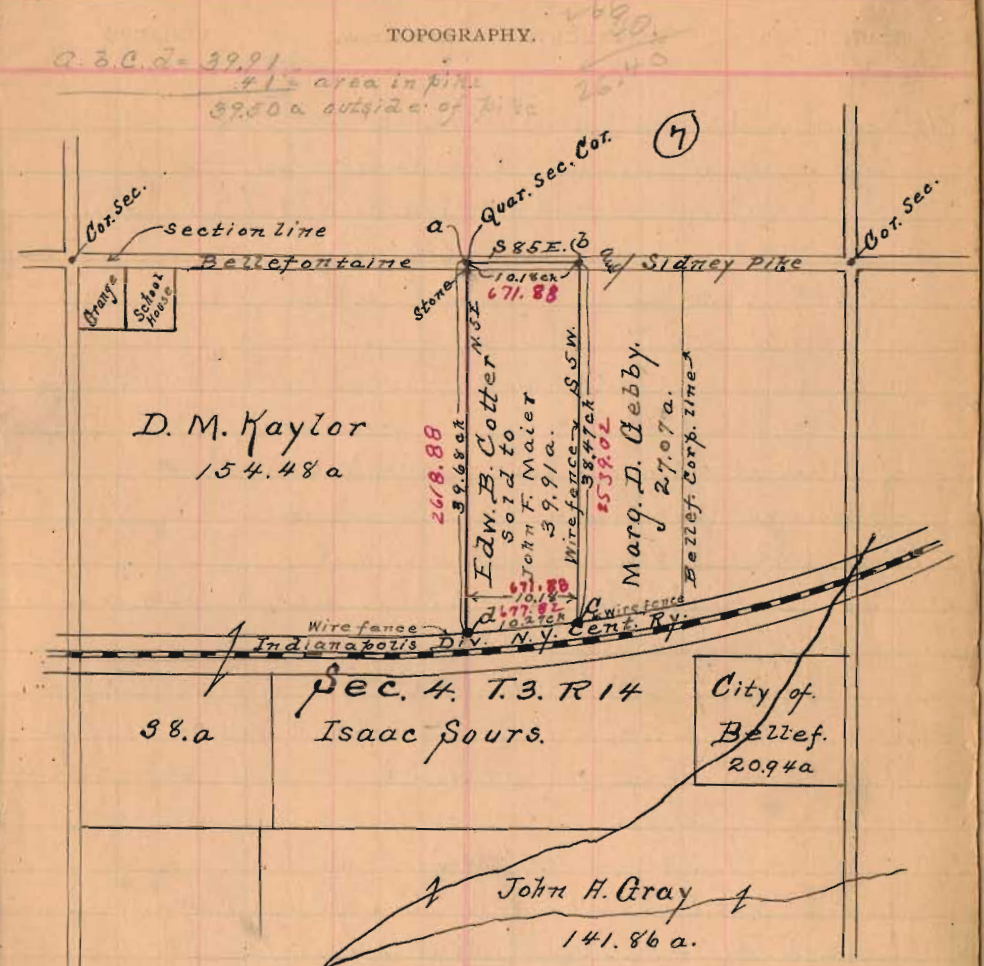 TOPOGRAPHY.
a.b.c.d = 39.91
.41 = area in pike
39.50 a outside of pike
26.40
7
Cor. Sec.
section line
a
Quar. Sec. Cor.
b
Cor. Sec.
Bellefontaine
S 85 E.
Sidney Pike
10.18 ch
671.88
Stone
Grange
School House
N 5 E
2618.88
39.68 ch
Edw. B. Cotter
Sold to
John F. Maier
39.91 a.
Wire fence
S 5 W.
38.47 ch
2539.02
Marg. D. Gebby.
27.07 a.
Bellef. Corp. line
D. M. Kaylor
154.48 a
671.88
10.18
d
677.82
10.27 ch
c
wire fence
Wire fence
Indianapolis Div. N.Y. Cent. Ry.
Sec. 4. T. 3. R 14
38. a
Isaac Sours.
City of
Bellef.
20.94 a
John A. Gray
141.86 a.